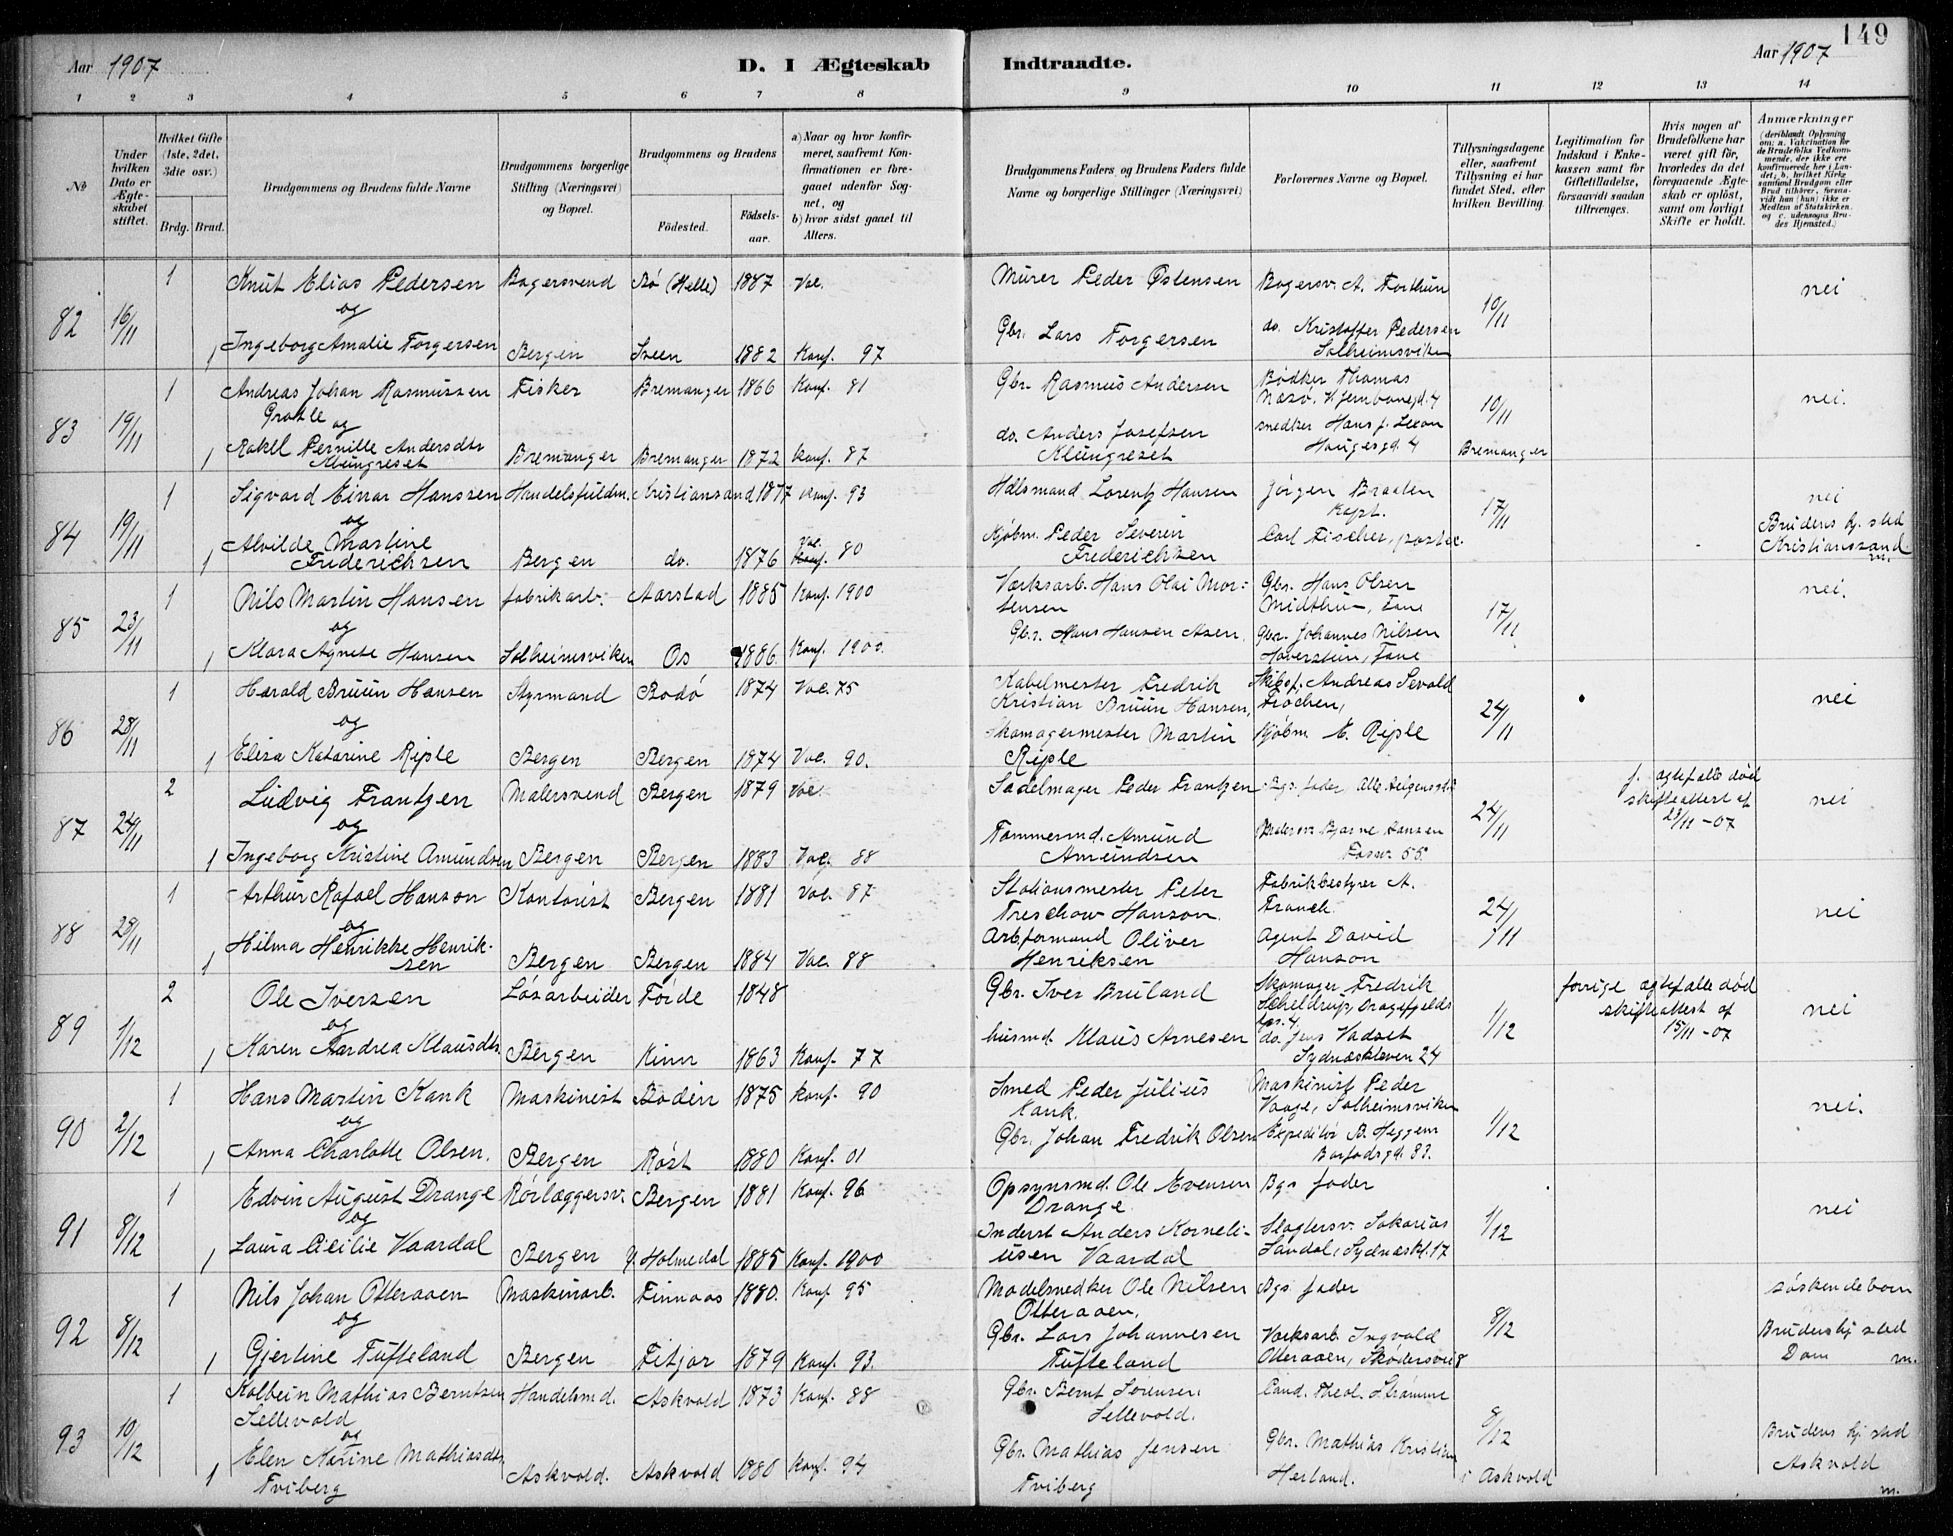 149
Aar 1907
D. I Ægteskab Indtraadte.
Aar 1907
1 2 3 4 5 6 7 8 9 10 11 12 13 14
No
Under hvilken Dato er Ægteskabet stiftet.
Hvilket Gifte (1ste, 2det, 3die osv.)
Brdg. Brud.
Brudgommens og Brudens fulde Navne
Brudgommens borgerlige Stilling (Næringsvei) og Bopæl.
Brudgommens og Brudens
Födested.
Födselsaar.
a) Naar og hvor konfirmeret, saafremt Konfirmationen er foregaaet udenfor Sognet, og
b) hvor sidst gaaet til Alters.
Brudgommens Faders og Brudens Faders fulde Navne og borgerlige Stillinger (Næringsvei)
Forlovernes Navne og Bopæl.
Tillysningsdagene eller, saafremt Tillysning ei har fundet Sted, efter hvilken Bevilling.
Legitimation for Indskud i Enkekassen samt for Giftetilladelse, forsaavidt saadan tiltrænges.
Hvis nogen af Brudefolkene har været gift för, hvorledes da det foregaaende Ægteskab er oplöst, samt om lovligt Skifte er holdt.
Anmærkninger (deriblandt Oplysning om: a. Vakcination for de Brudefolks Vedkommende, der ikke ere konfirmerede her i Landet; b. hvilket Kirkesamfund Brudgom eller Brud tilhörer, forsaavidt han (hun) ikke er Medlem af Statskirken, og c. udensogns Brudes Hjemsted.)
82 16/11 1 Knut Elias Pedersen Bagersvend Bø (Helle) 1887 Vac. Murer Peder Østensen Bagersv. A. Forthun 10/11 nei
og
1 Ingeborg Amalie Torgersen Bergen Sveen 1882 Konf. 97 Gbr. Lars Torgersen do. Kristoffer Pedersen
Solheimsviken
83 19/11 1 Andreas Johan Rasmussen Fisker Bremanger 1866 Konf. 81 Gbr. Rasmus Andersen Bødker Thomas 10/11 nei.
Grotle og
1 Rakel Pernille Andersdtr Bremanger Bremanger 1872 Konf. 87 do. Anders Josefsen snedker Hans J.
Klungreset Klungreset Haugesgd. 4 Bremanger
84 19/11 1 Sigvard Einar Hanssen Handelsfuldm. Kristiansand 1877 Konf. 93 Hdlsmand Lorentz Hansen Jørgen Braaten 17/11 nei
og Kapt. Brudens hj. sted
1 Alvilde Martine Bergen do. 1876 Vac. 80 Kjøbm. Peder Severin Carl Fischer, Kristianssand.
Frederichsen Frederichsen m.
85 23/11 1 Nils Martin Hansen fabrikarb. Aarstad 1885 Konf. 1900 Værksarb. Hans Olai Mor- Gbr. Hans Olsen 17/11 nei.
og tensen Midthu-, Fane
1 Klara Agnete Hansen Solheimsviken Os 1886 Konf. 1900. Gbr. Hans Hansen Aasen. Gbr. Johannes Nilsen
Haverstein, Fane
86 28/11 1 Harald Bruun Hansen Styrmand Bodø 1874 Vac. 75 Kabelmester Fredrik Skibsf. Andreas Sevald 24/11 nei
og Kristian Bruun Hansen,
1 Elisa Katarine Riple Bergen Bergen 1874 Vac. 90. Skomagermester Martin Kjøbm E. Riple
Riple
87 24/11 2 Ludvig Frantzen Malersvend Bergen 1879 Vac. Sadelmager Peder Frantzen Bgs. fader 24/11 f. ægtefælle død nei
og skifteattest af
1 Ingeborg Kristine Amundsen Bergen Bergen 1883 Vac. 88 Tømmermd. Amund Malersv. Bjarne Hansen 23/11 -07
Amundsen 55.
88 28/11 1 Arthur Rafael Hanson Kontorist Bergen 1881 Vac. 87 Stationsmester Peter Fabrikbestyrer A. 24/11 nei
og Treschow Hanson.
1 Hilma Henrikke Henrik- Bergen Bergen 1884 Vac. 88 Arb.formand Oliver Agent David
sen Henriksen Hanson
89 1/12 2 Ole Iversen Løsarbeider Førde 1848 Gbr. Iver Bruland Skomager Fredrik 1/12 forrige ægtefælle død nei
og Scheldrup, Dragefjelds skifteattest af
1 Karen Andrea Klausdtr. Bergen Kinn 1863 Konf. 77 husmd. Klaus Arnesen do. Jens Vadset 15/11 -07
Sydneskleven 24
90 2/12 1 Hans Martin Kank Maskinist Bodin 1875 Konf. 90 Smed Peder Julius Maskinist Peder 1/12 nei.
og Kank. Vaage, Solheimsviken
1 Anna Charlotte Olsen. Bergen Røst 1880 Konf. 01 Gbr. Johan Fredrik Olsen Expeditør B. Heggem
83.
91 8/12 1 Edvin August Drange Rørlæggersv. Bergen 1881 Konf. 96 Opsynsmd. Ole Evensen Bgs fader 1/12 nei
og Drange
1 Laura Cicilie Vaardal Bergen Y. Holmedal 1885 Konf. 1900 Inderst Anders Korneli- Slagtersv. Sakarias
usen Vaardal Sandal, Sydneskl. 17
92 8/12 1 Nils Johan Otteraaen Maskinarb. Finnaas 1880. Konf 95 Modelsnedker Ole Nilsen Bgs. fader 8/12 søskendebarn
og Otteraaen,
1 Gjertine Tufteland Bergen Fitjar 1879 Konf. 93. Gbr. Lars Johannesen Værksarb. Ingvald Brudens hj sted
Tufteland Otteraaen, Dom m.
93 10/12 1 Kolbein Mathias Berntsen Handelsmd. Askvold 1873 Konf. 88 Gbr. Bernt Sørensen Cand. Theol. Strømme 8/12
Sellevold Sellevold. Brudens hj. sted
og
1 Elen Karine Mathiasdtr Askvold. Askvold 1880 Konf. 94 Gbr. Mathias Jensen Gbr. Mathias Kristian Askvold
Tviberg Tviberg Herland. i Askvold m.